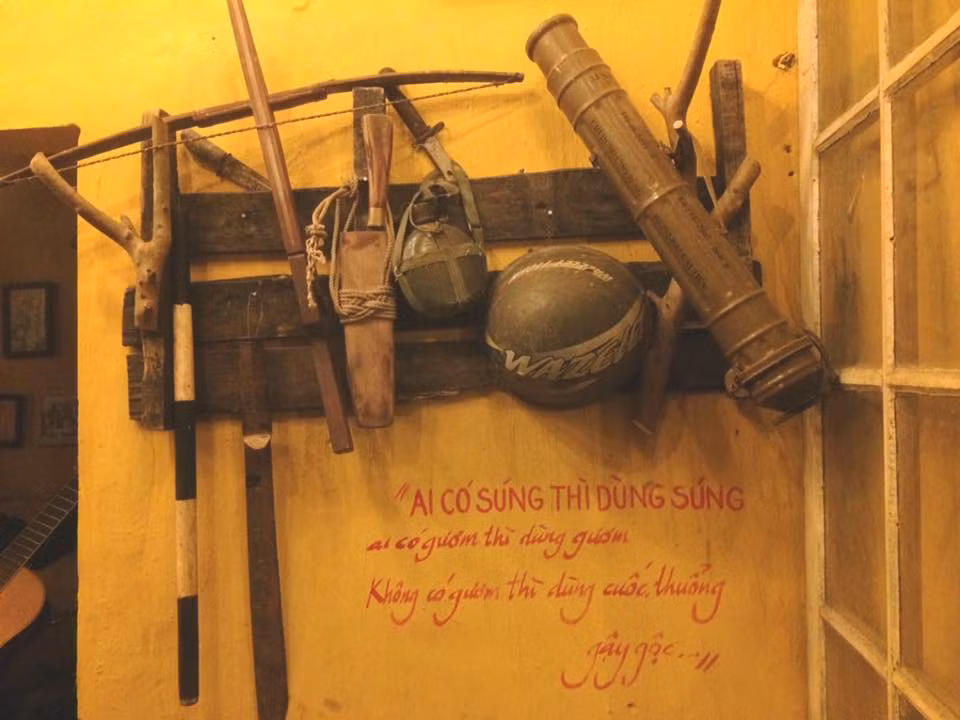 "AI CÓ SÚNG THÌ DÙNG SÚNG
ai có gươm thì dùng gươm
Không có gươm thì dùng cuốc, thuổng
gậy gộc..."